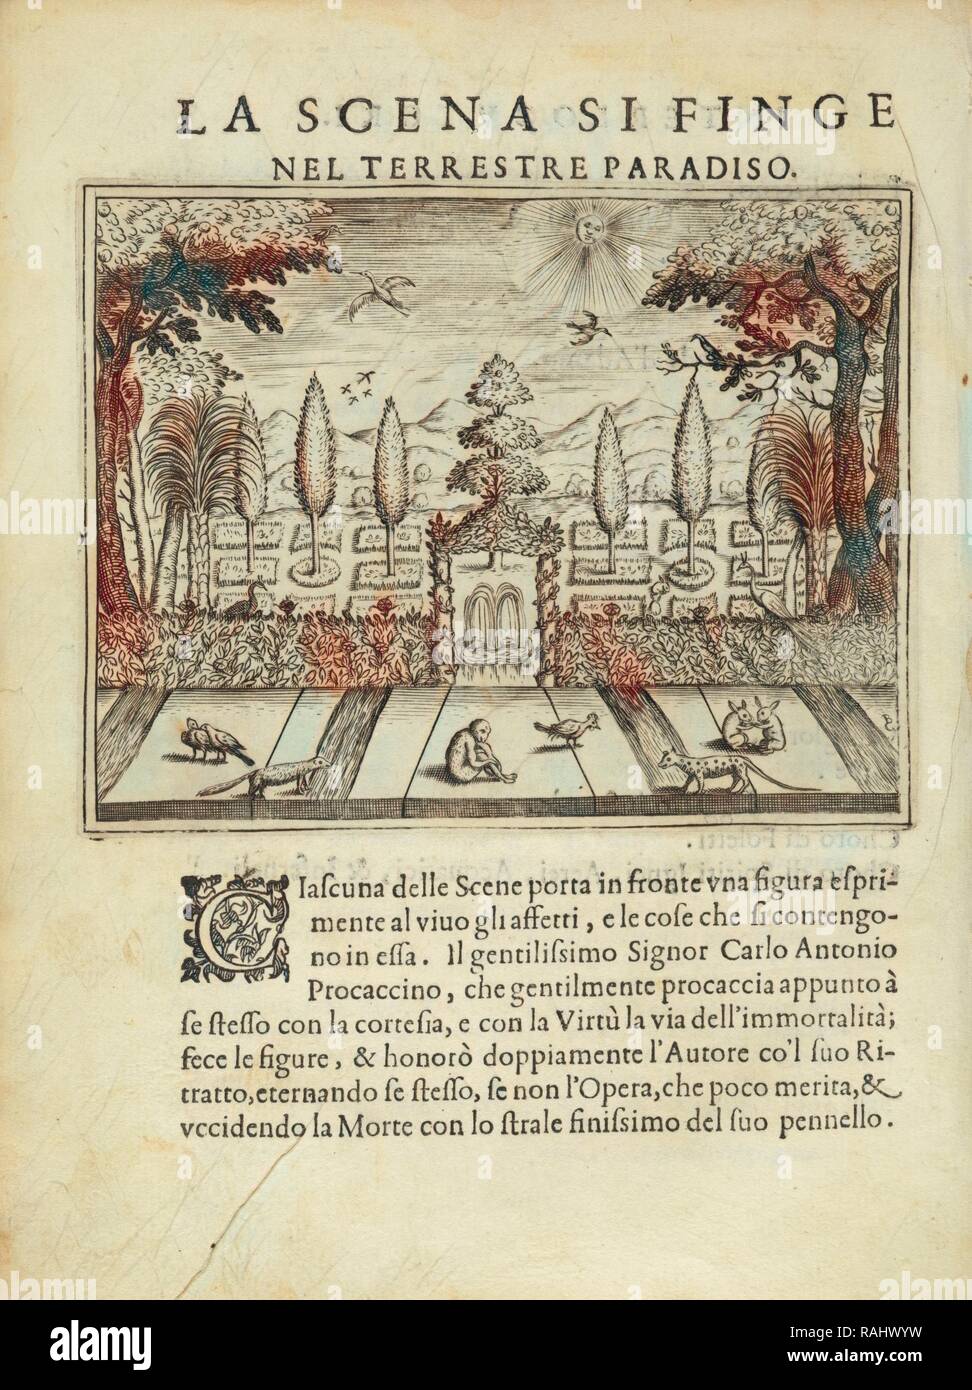 LA SCENA SI FINGE
NEL TERRESTRE PARADISO.
CIaſcuna delle Scene porta in fronte vna figura eſpri-
mente al viuo gli affetti, e le coſe che ſi contengo-
no in eſſa. Il gentiliſſimo Signor Carlo Antonio
Procaccino, che gentilmente procaccia appunto à
ſe ſteſſo con la corteſia, e con la Virtù la via dell'immortalità;
fece le figure, & honorò doppiamente l'Autore co'l ſuo Ri-
tratto, eternando ſe ſteſſo, ſe non l'Opera, che poco merita, &
vccidendo la Morte con lo ſtrale finiſſimo del ſuo pennello.
alamy
alamy
Image ID: RAHWYW
www.alamy.com